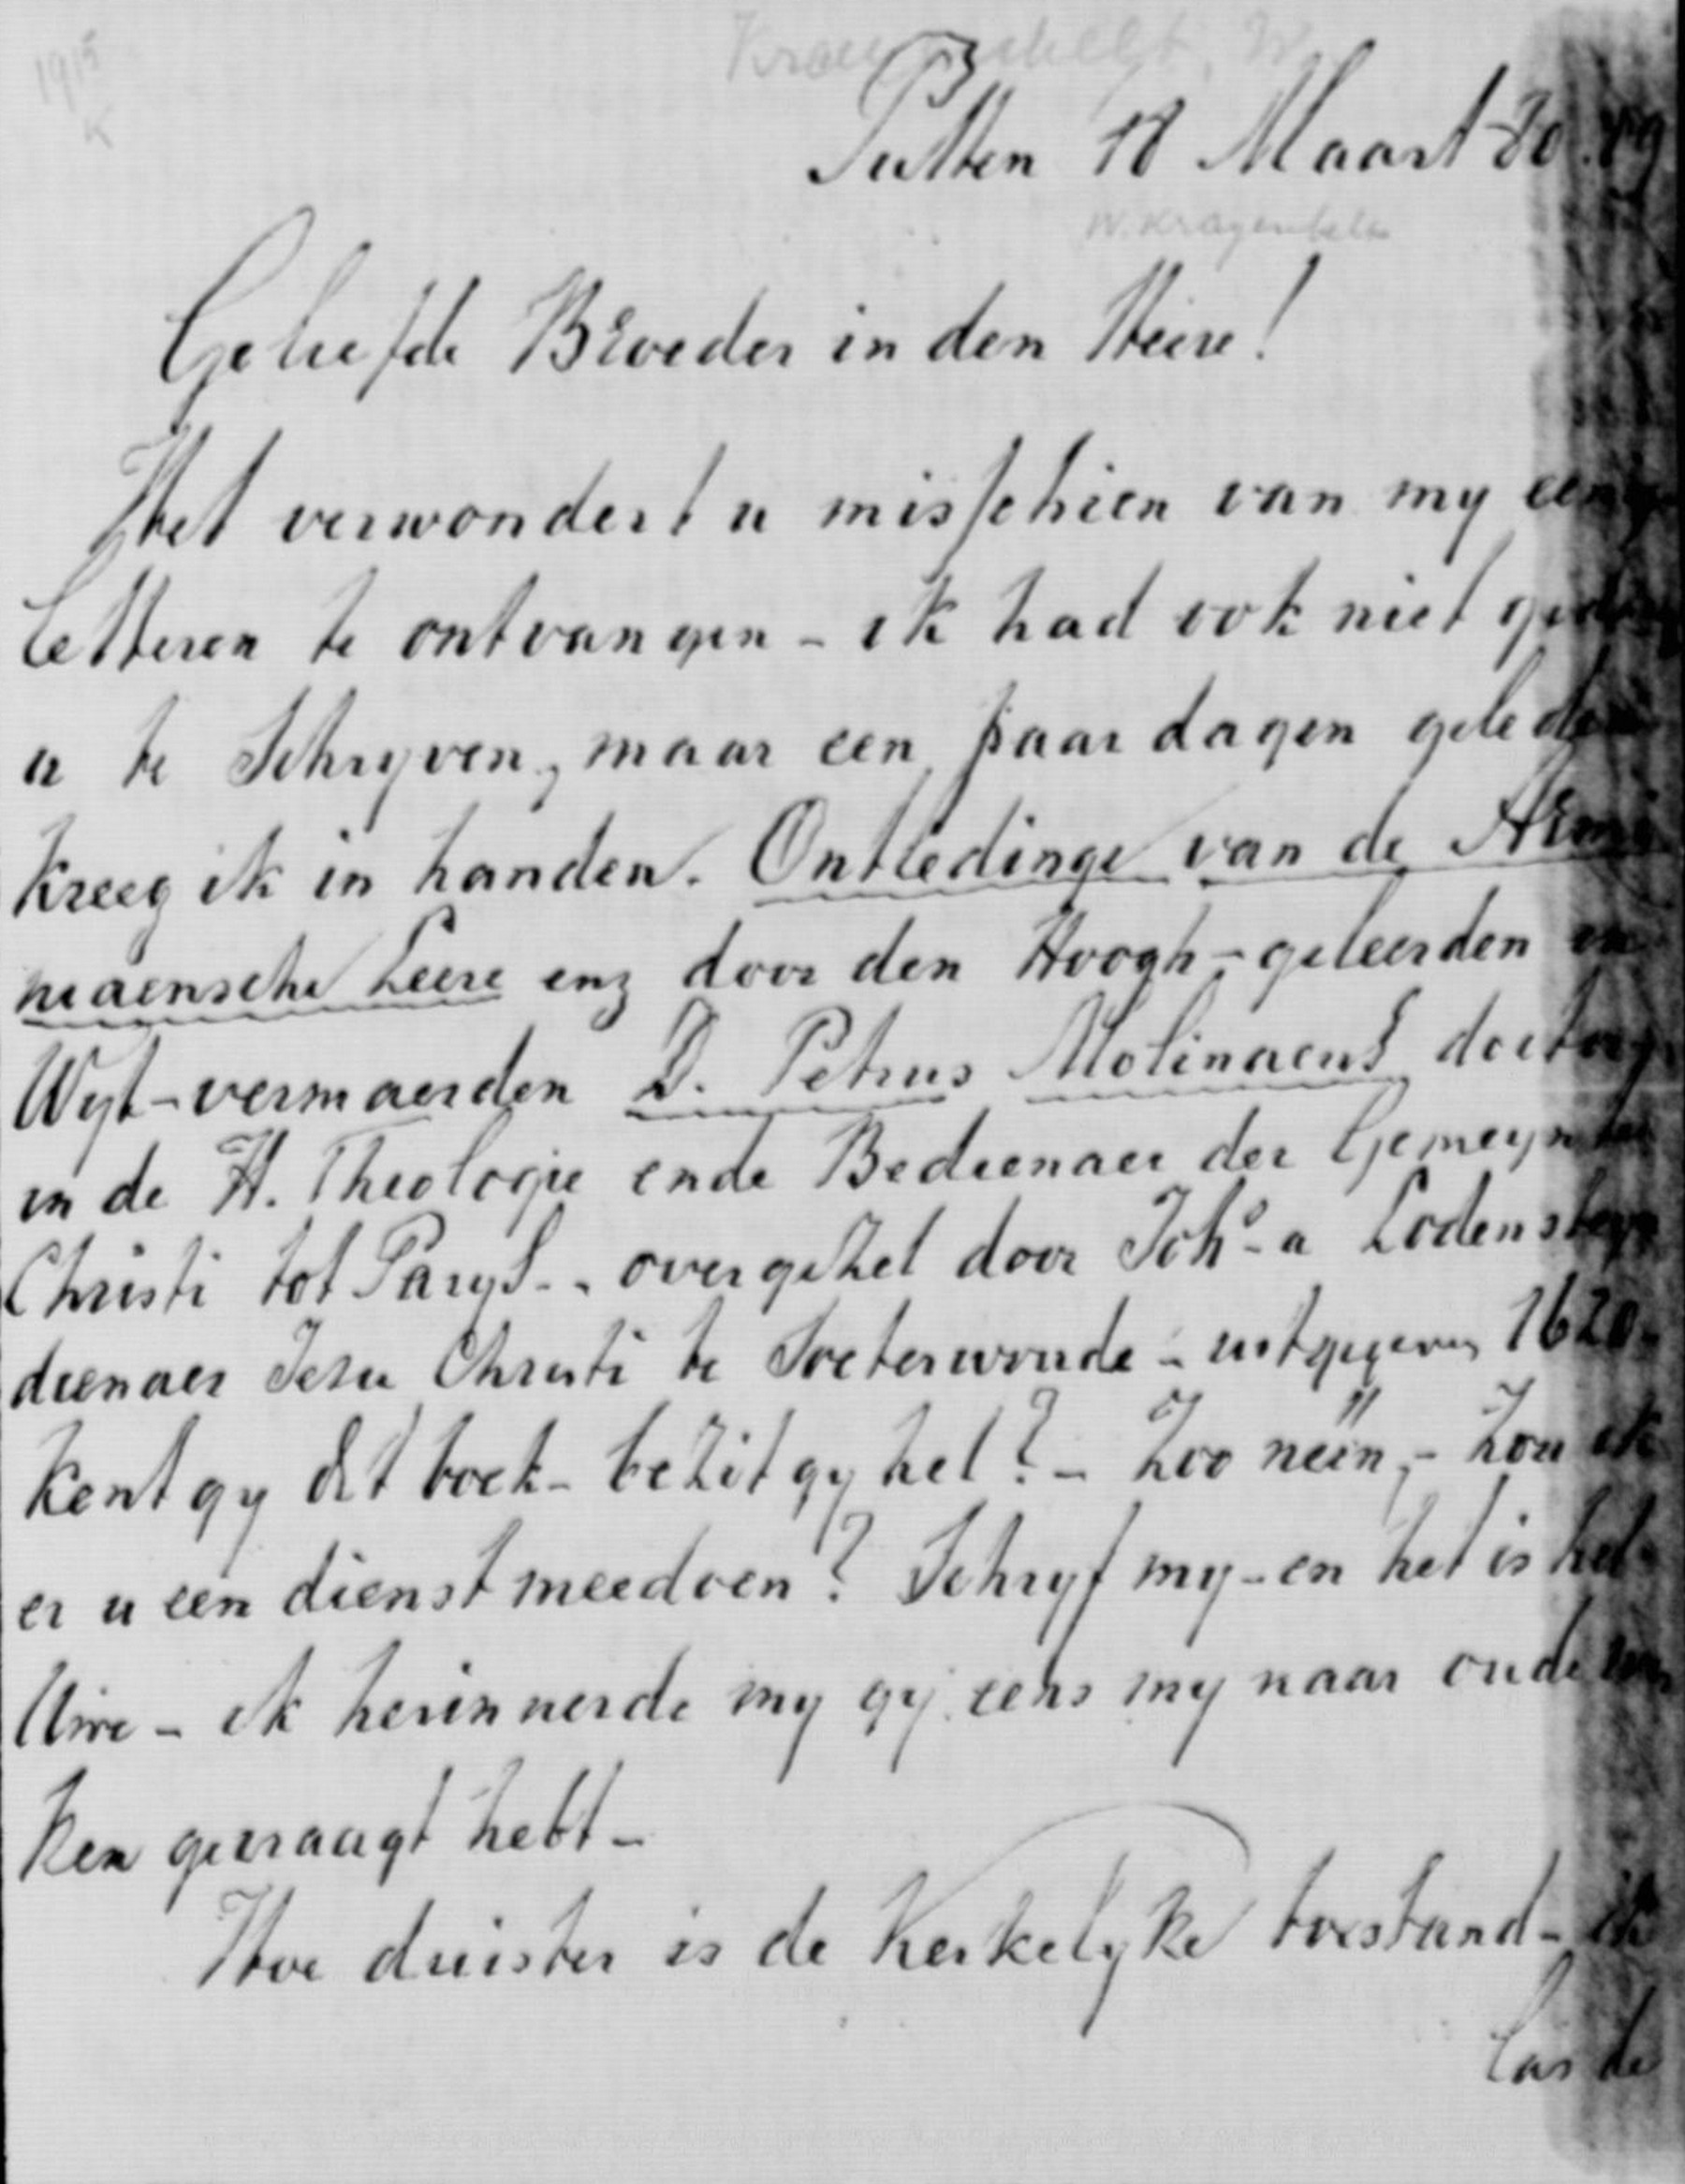 1915
K
Putten 18 Maart 80
W. Kragenbelt
Geliefde Broeder in den Heere!
Het verwondert u misschien van my
letteren te ontvangen - ik had ook niet
u te Schryven, maar een paar dagen geleden
kreeg ik in handen. Ontledinge van de Armi
niaensche Leere enz door den Hoogh-geleerden en
Wyt-vermaerden D. Petrus Molinaeus doctor
in de H. Theologie ende Bedienaer der Gemeynte
Christi tot Parys - overgezet door Joh⁠s a Lodensteyn
dienaer Jesu Christi te Soeterwoude - uitgegeven 1620.
Kent gy dit boek - bezit gy het? - Zoo neen, - Zou ik
er u een dienst meedoen? Schryf my - en het is het
Uwe - ik herinnerde my gy eens my naar oude
ken gevraagt hebt -
Hoe duister is de Kerkelyke toestand - ik
las de